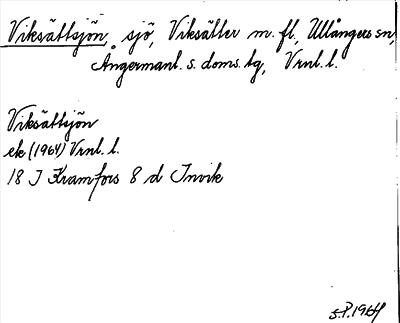 Viksättsjön, sjö, Viksätter m.fl., Ullångers sn,
Ångermanl. s. doms. tg, Vrnl. l.
Viksättsjön
ek (1964) Vrnl. l.
18 J Kramfors 8 d Invik
S.P. 1964